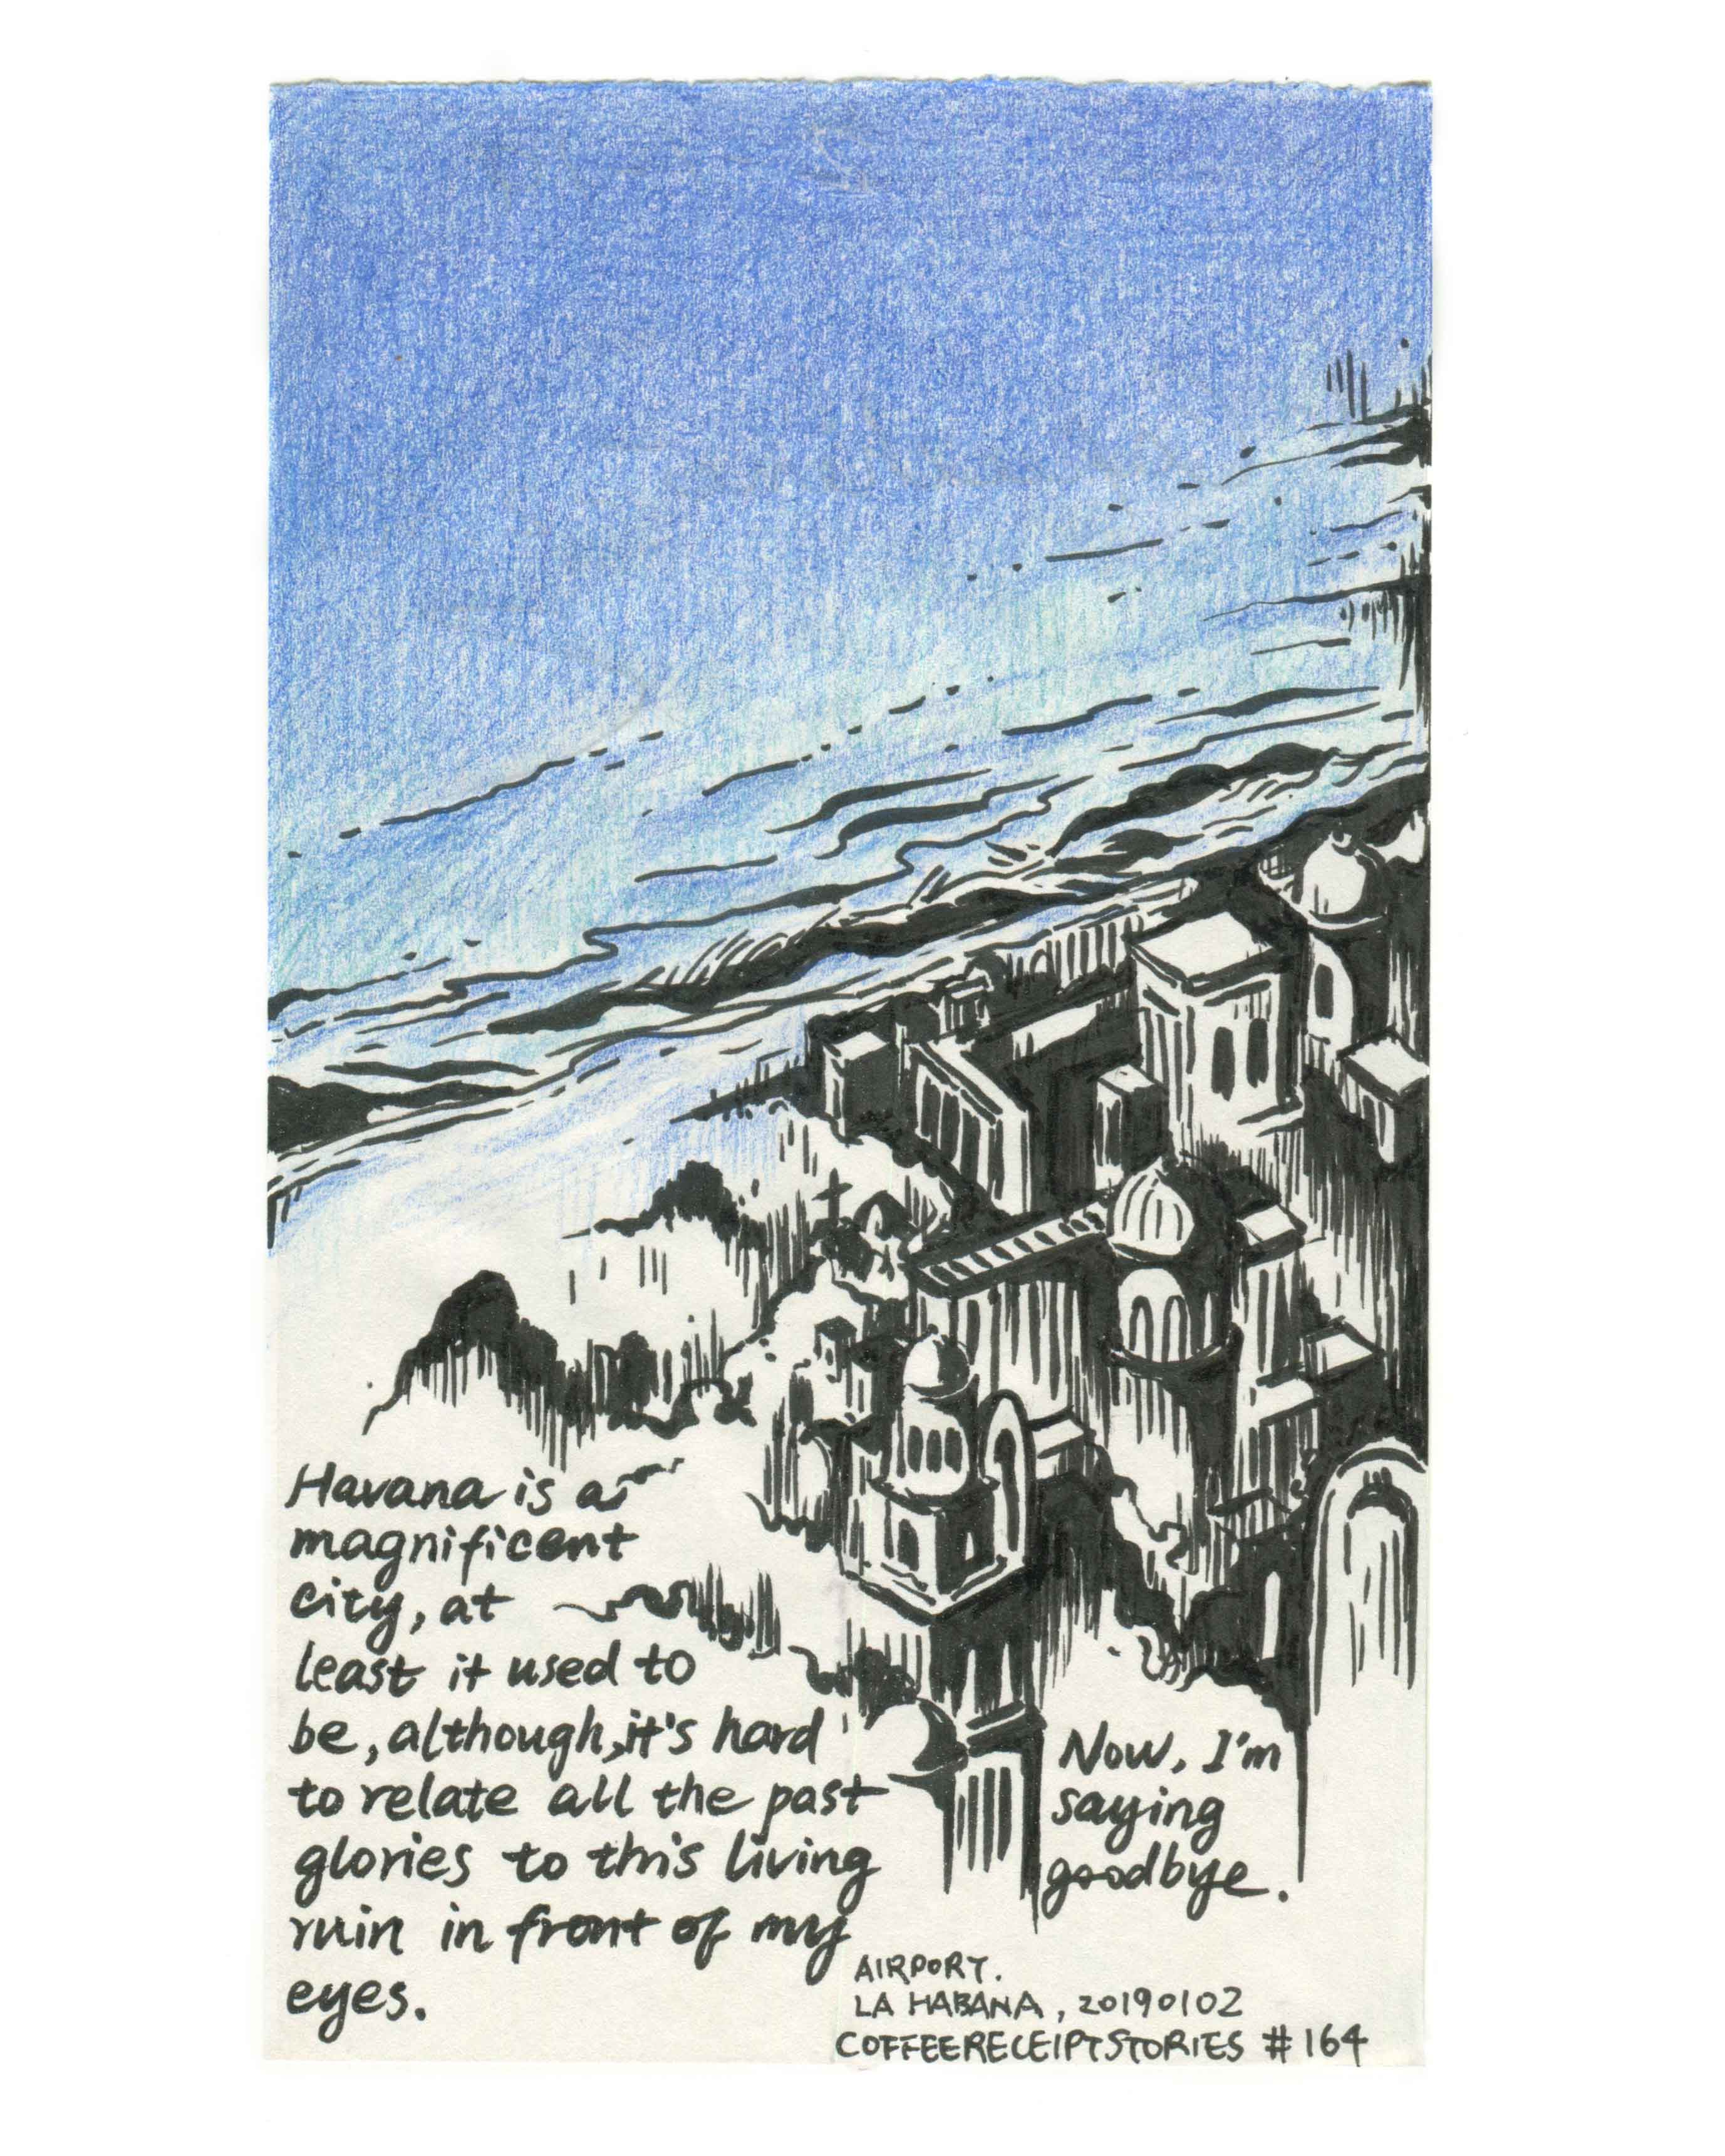 Havana is a
magnificent
city, at
least it used to
be, although, it's hard
to relate all the past
glories to this living
ruin in front of my
eyes.
Now, I'm
saying
goodbye.
AIRPORT.
LA HABANA, 20190102
COFFEERECEIPTSTORIES #164